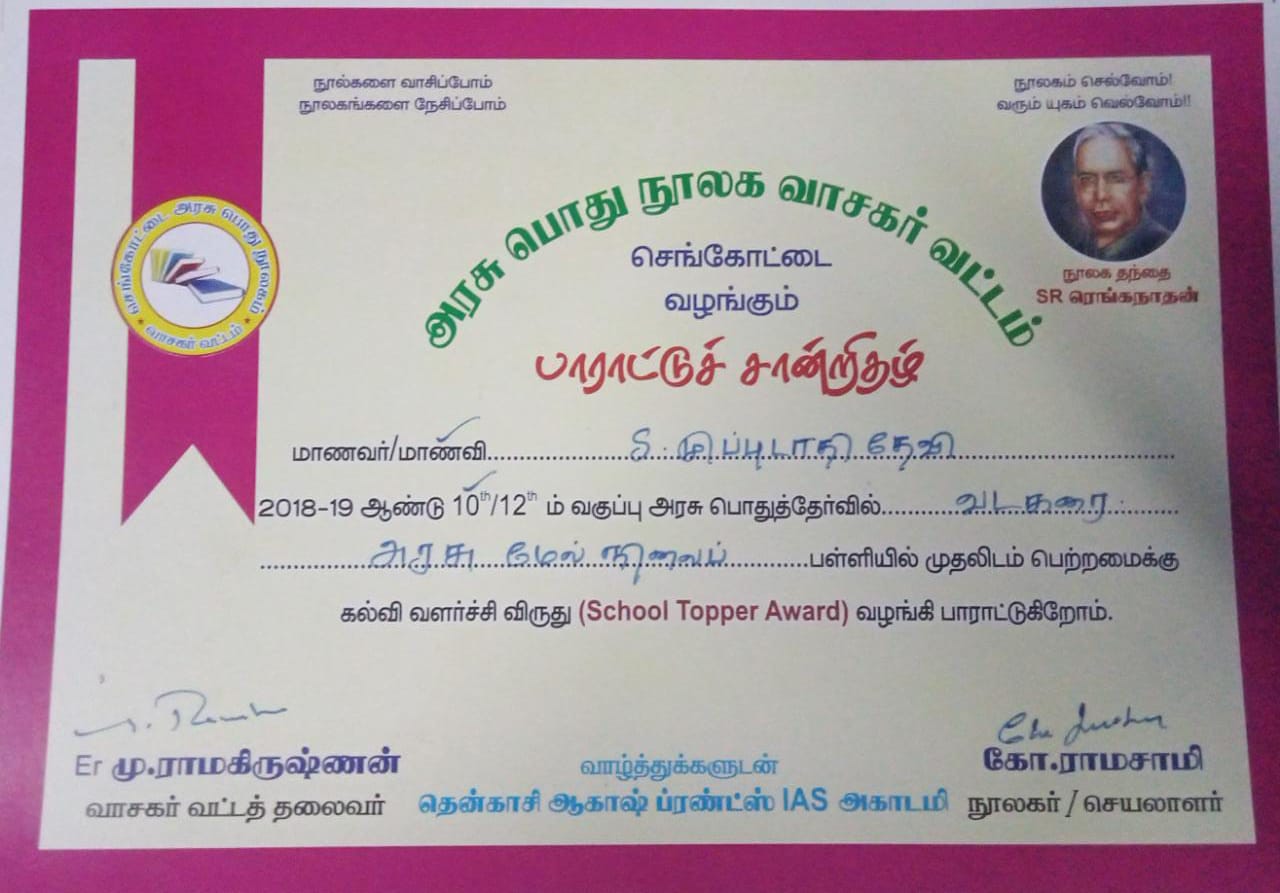 நூல்களை வாசிப்போம்
நூலகங்களை நேசிப்போம்
நூலகம் செல்வோம்!
வரும் யுகம் வெல்வோம்!!
நூலக தந்தை
SR ரெங்கநாதன்
செங்கோட்டை அரசு பொது நூலகம்
* வாசகர் வட்டம் *
அரசு பொது நூலக வாசகர் வட்டம்
செங்கோட்டை
வழங்கும்
பாராட்டுச் சான்றிதழ்
மாணவர்/மாணவி.......... முப்புடாதி தேவி..........
2018-19 ஆண்டு 10th/12th ம் வகுப்பு அரசு பொதுத்தேர்வில்..........வடகரை..........
..........அரசு மேல் நிலைப்..........பள்ளியில் முதலிடம் பெற்றமைக்கு
கல்வி வளர்ச்சி விருது (School Topper Award) வழங்கி பாராட்டுகிறோம்.
Er மு.ராமகிருஷ்ணன்
வாசகர் வட்டத் தலைவர்
வாழ்த்துக்களுடன்
தென்காசி ஆகாஷ் ப்ரண்ட்ஸ் IAS அகாடமி
கோ.ராமசாமி
நூலகர் / செயலாளர்